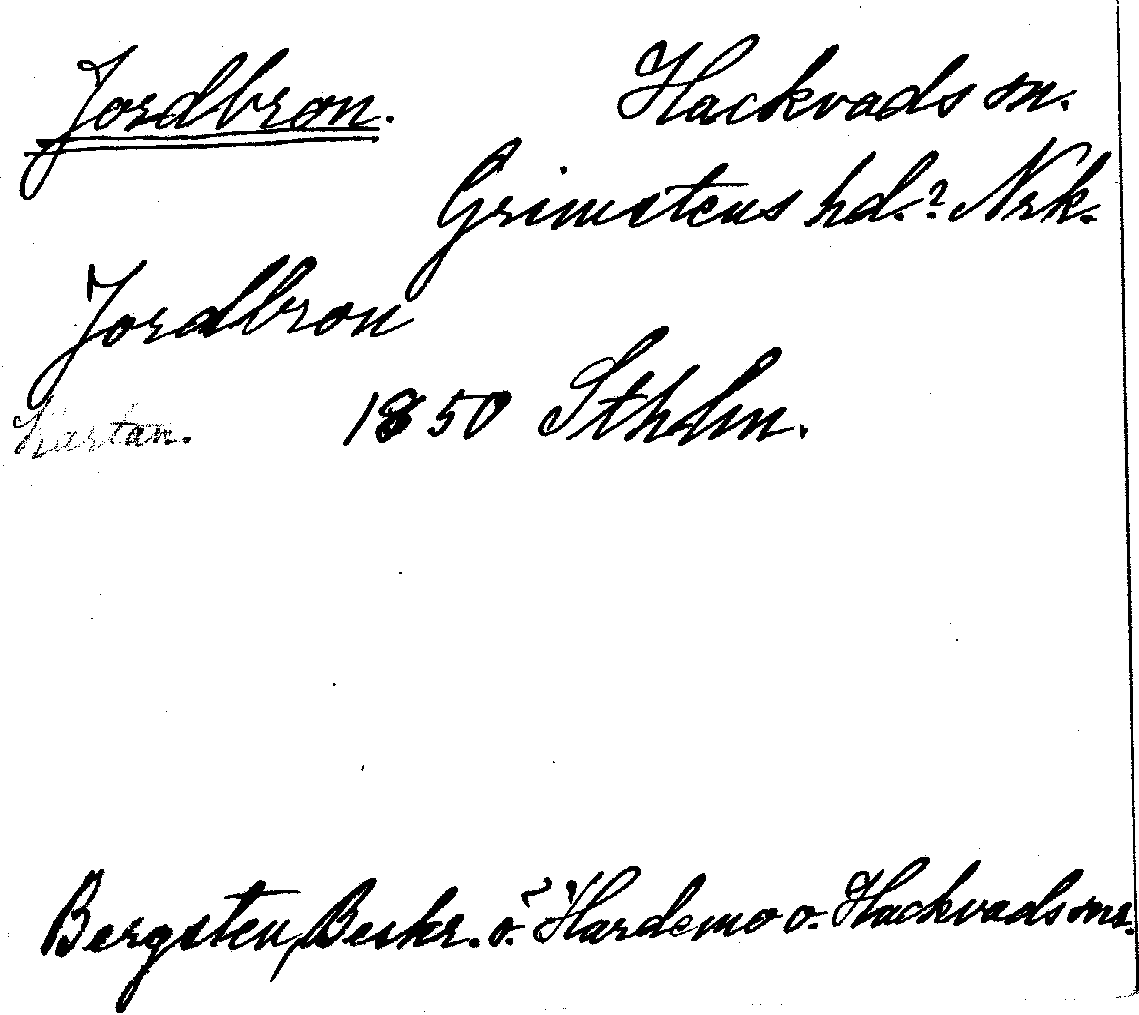 Jordbron. Hackvads sn.
Grimstens hd.? Nrk.
Jordbron
kartan. 1850 Sthlm.
Bergsten, Beskr. ö. Hardemo o. Hackvads snr.